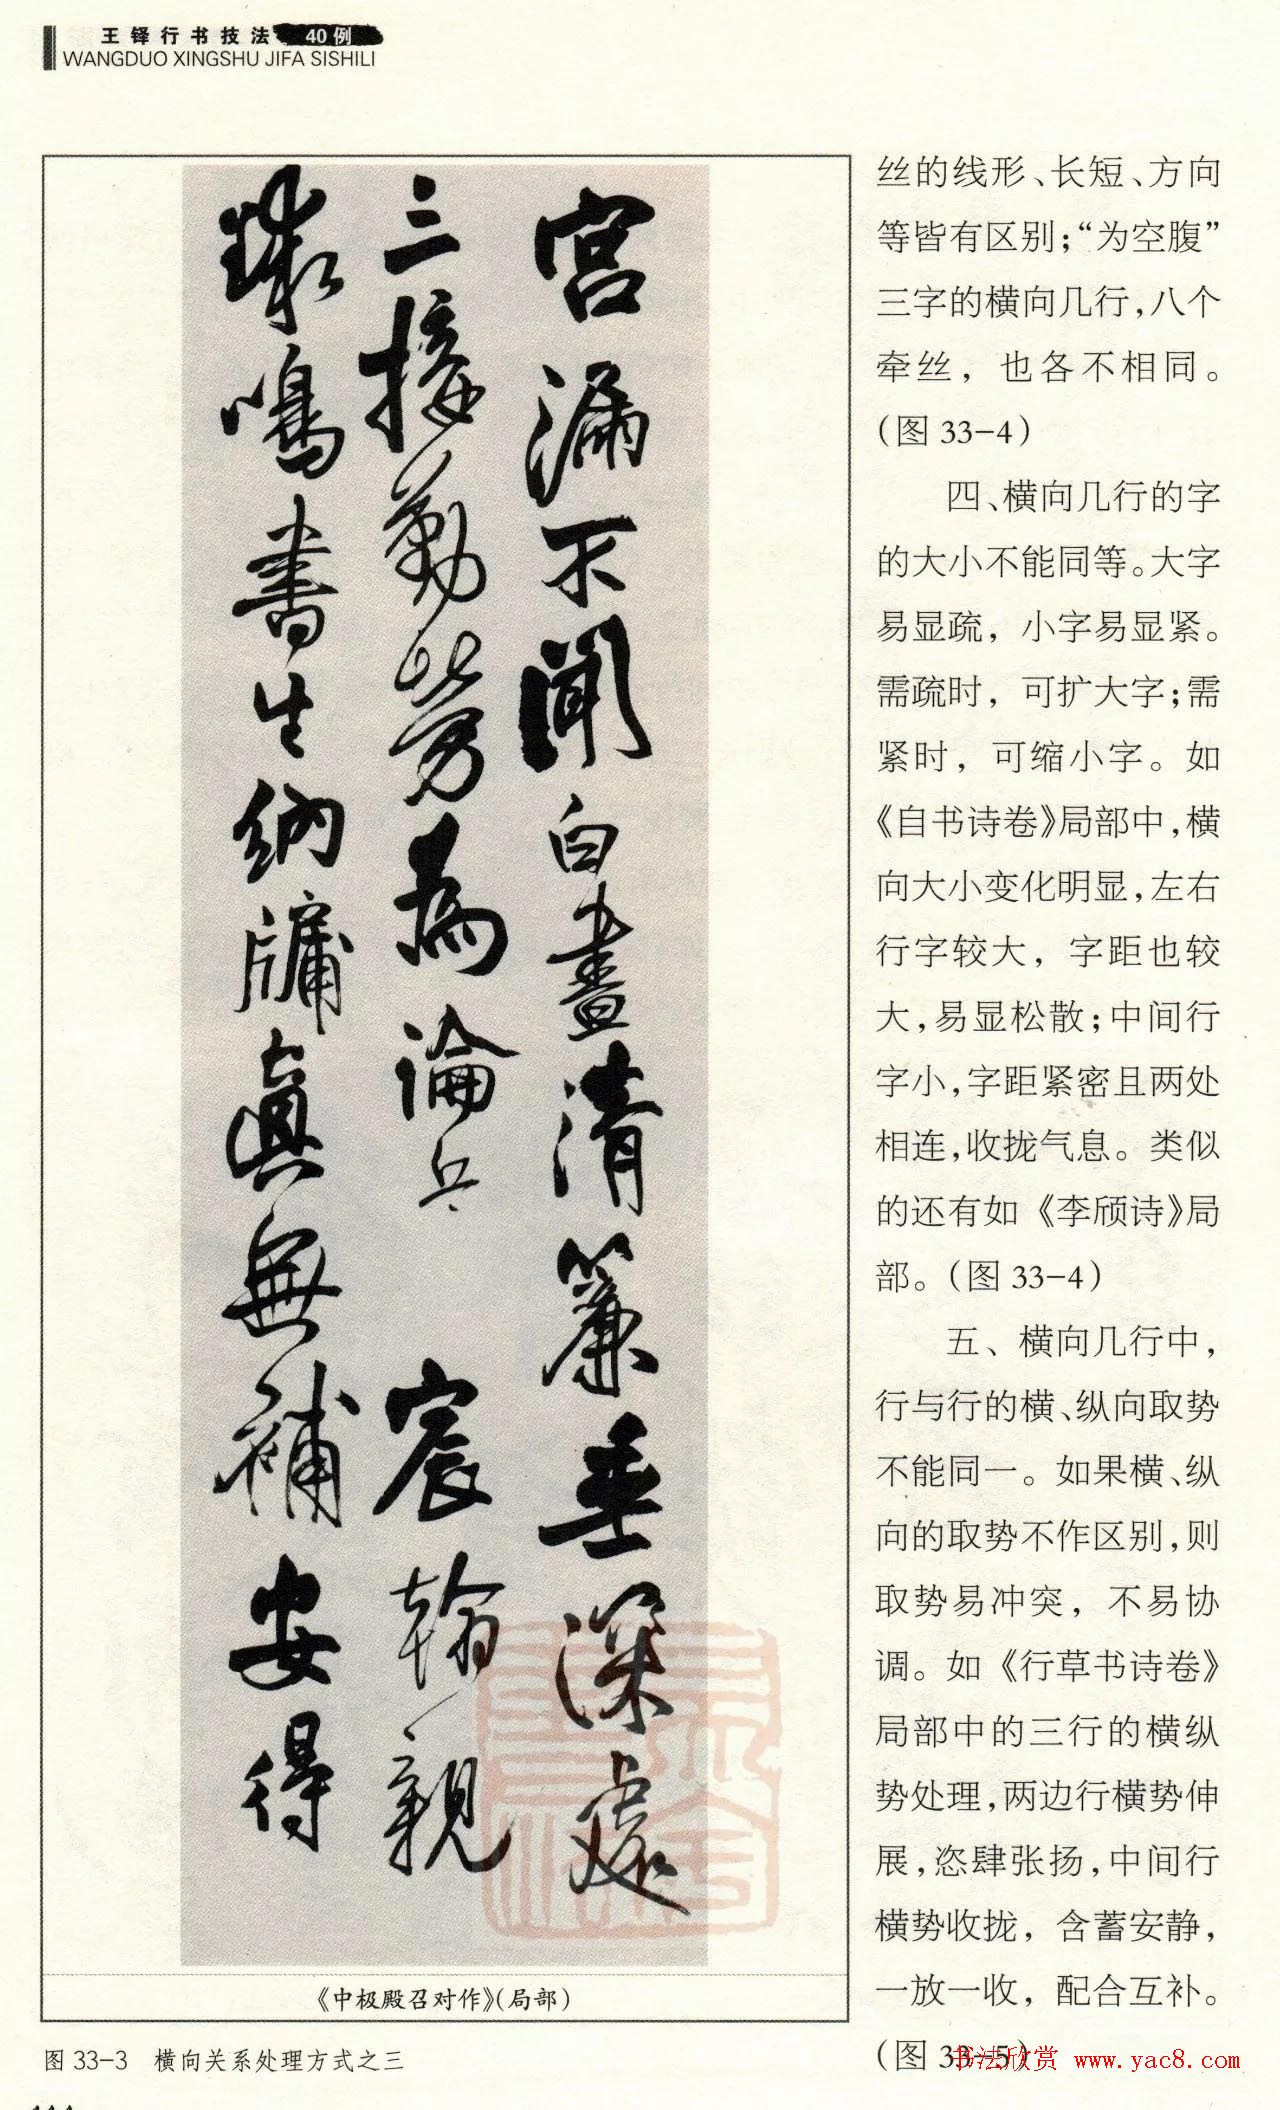 王铎行书技法 40例
WANGDUO XINGSHU JIFA SISHILI
宫漏不闻白晝清簾垂深處
三接勤劳為論兵 宸翰親
球鳴書生納牖真無補安得
《中极殿召对作》(局部)
图 33-3 横向关系处理方式之三
丝的线形、长短、方向
等皆有区别;“为空腹”
三字的横向几行,八个
牵丝，也各不相同。
(图 33-4)
四、横向几行的字
的大小不能同等。大字
易显疏，小字易显紧。
需疏时，可扩大字;需
紧时，可缩小字。如
《自书诗卷》局部中,横
向大小变化明显,左右
行字较大，字距也较
大,易显松散;中间行
字小,字距紧密且两处
相连,收拢气息。类似
的还有如《李颀诗》局
部。(图 33-4)
五、横向几行中,
行与行的横、纵向取势
不能同一。如果横、纵
向的取势不作区别,则
取势易冲突，不易协
调。如《行草书诗卷》
局部中的三行的横纵
势处理,两边行横势伸
展,恣肆张扬,中间行
横势收拢，含蓄安静,
一放一收，配合互补。
(图 33-5)
书法欣赏 www.yac8.com